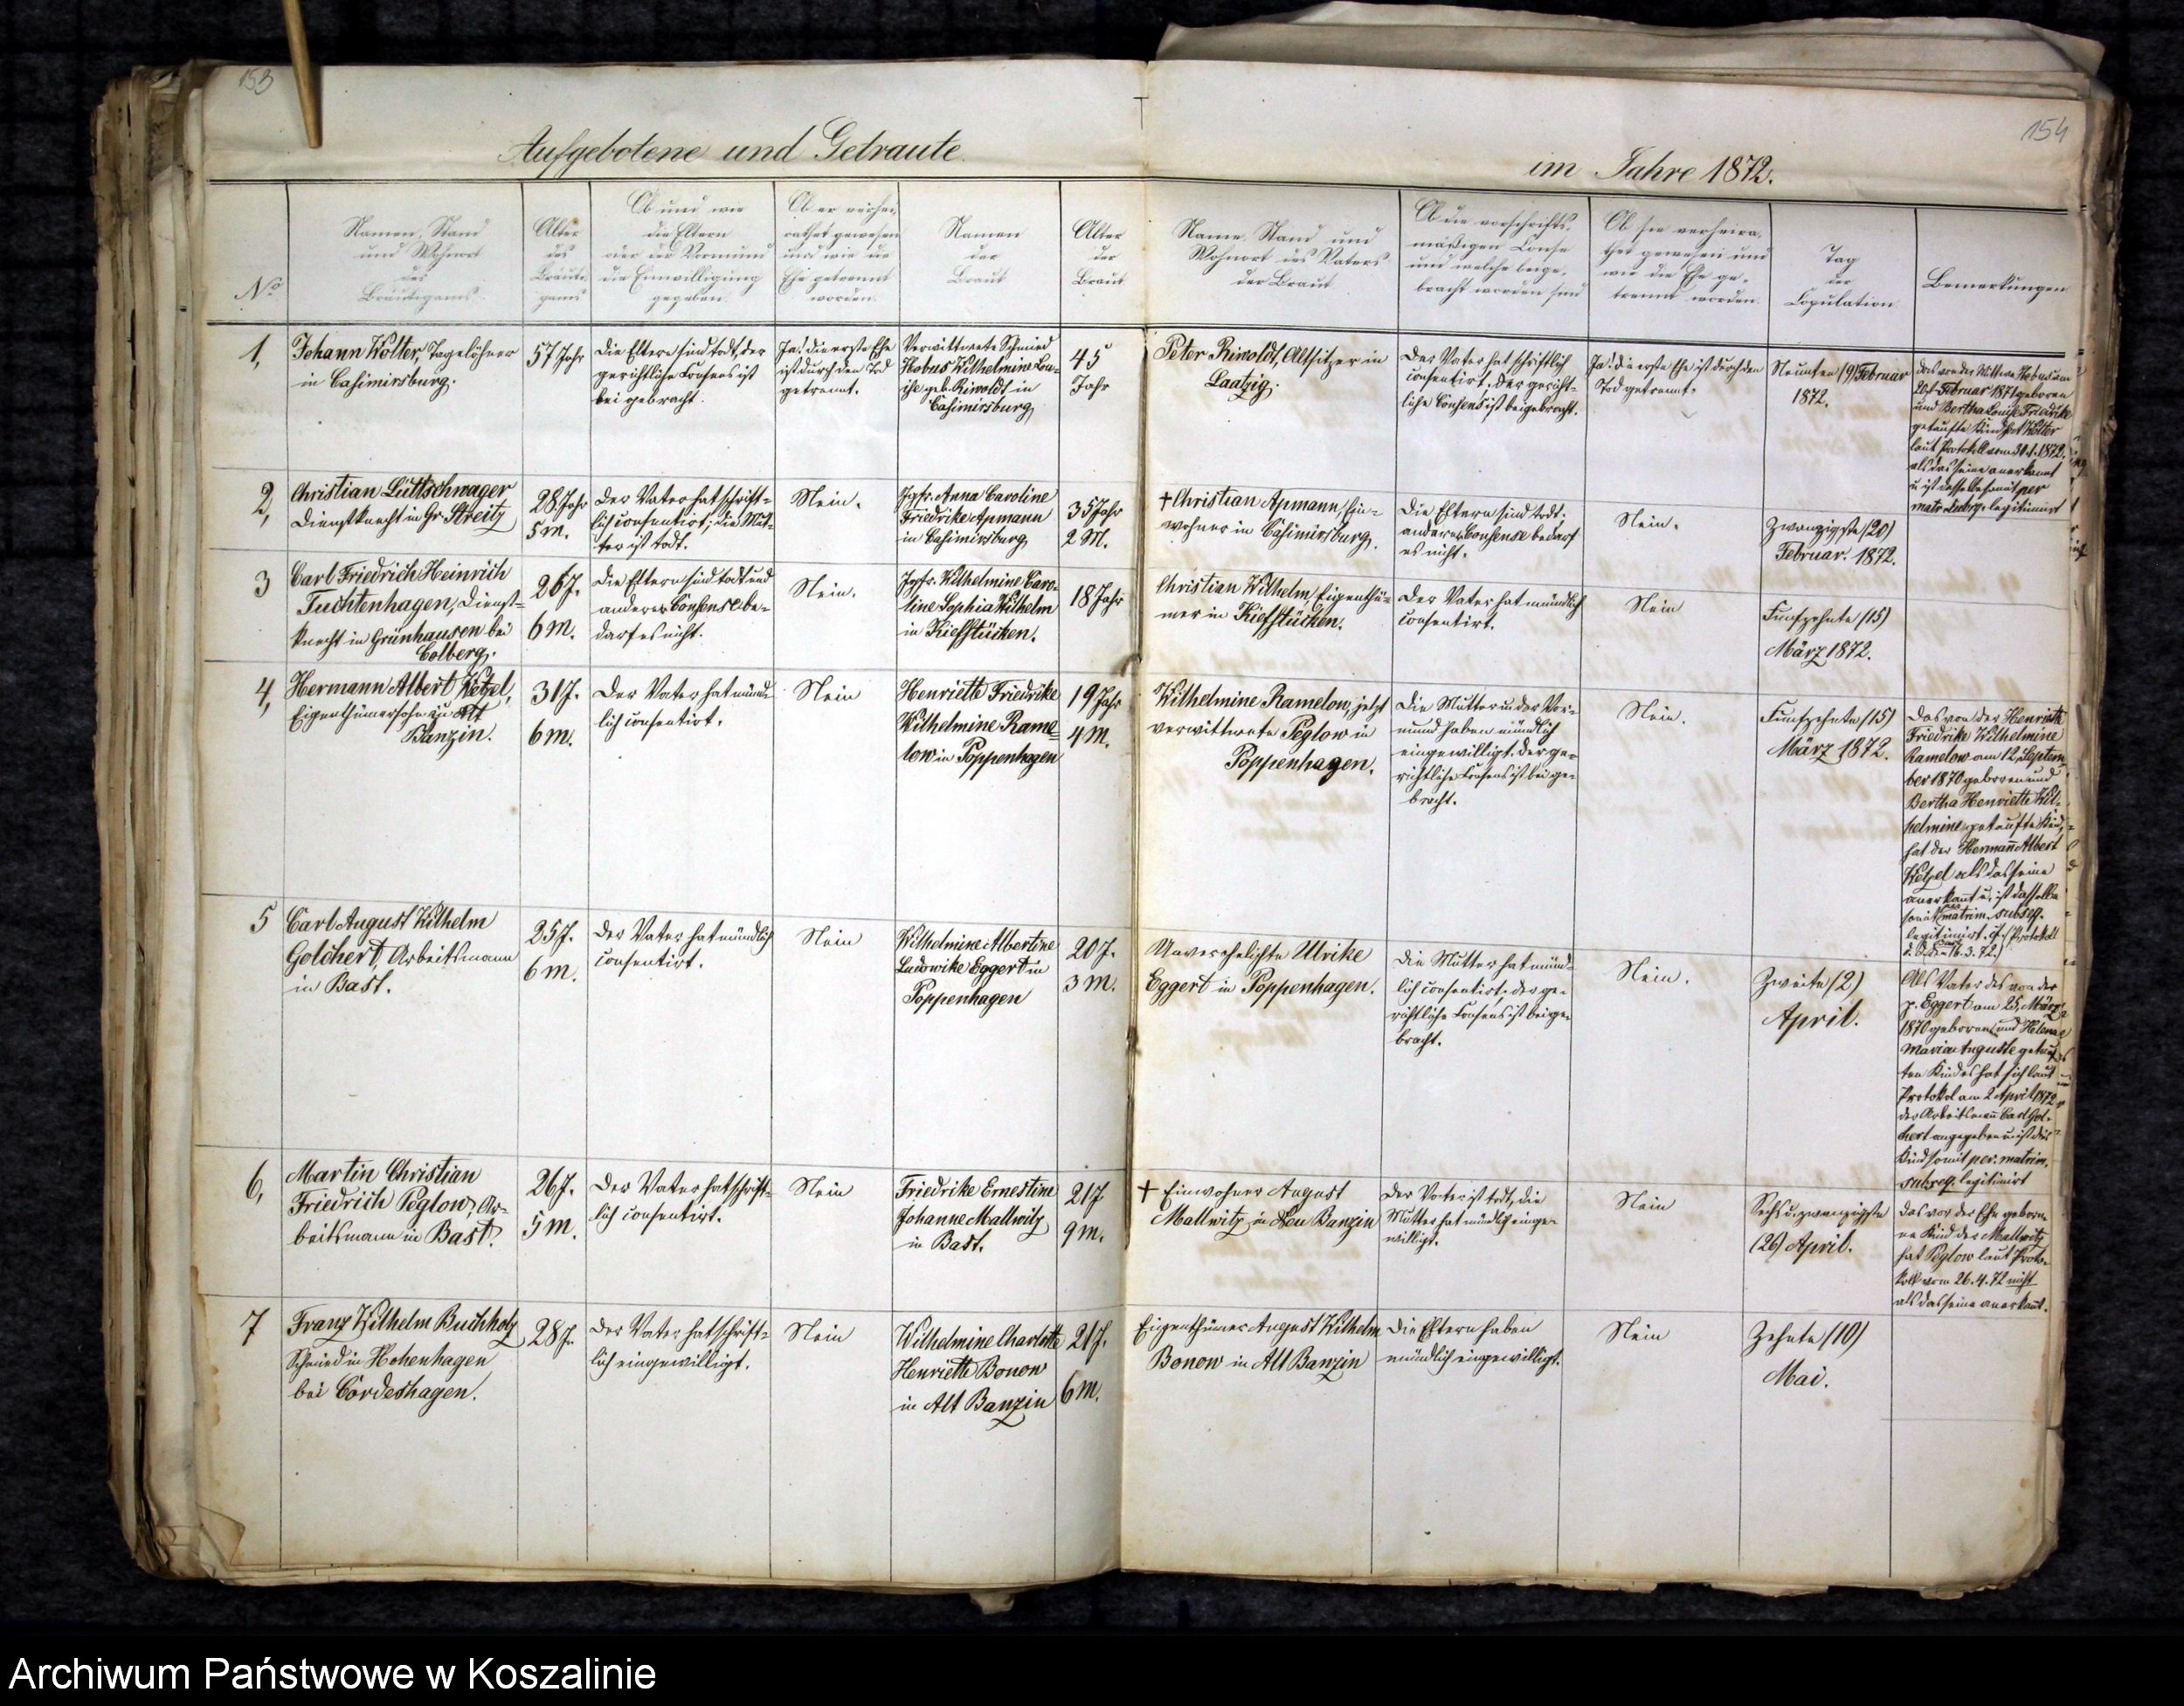 153
154
Aufgebotene und Getraute
im Jahre 1872.
No
Namen, Stand
und Wohnort
des
Bräutigams.
Alter
des
Bräuti-
gams
Ob und wie
die Eltern
oder der Vormund
die Einwilligung
gegeben.
Ob er verhei-
rathet gewesen
und wie die
Ehe getrennt
worden.
Namen
der
Braut
Alter
der
Braut
Name, Stand und
Wohnort des Vaters
der Braut
Ob die vorschrifts-
mäßigen Conse
und welche beige-
bracht worden sind
Ob sie verheira-
thet gewesen und
wie die Ehe ge-
trennt worden.
Tag
der
Copulation
Bemerkungen
1,
Johann Wolter, Tagelöhner
in Casimirsburg.
57 Jahr
Die Eltern sind todt, der
gerichtliche Consens ist
beigebracht.
Ja! die erste Ehe
ist durch den Tod
getrennt.
Verwittwete Schmied
Hobus Wilhelmine Lou-
ise geb. Riwoldt in
Casimirsburg
45
Jahr
Peter Riwoldt, Altsitzer in
Laatzig.
Der Vater hat schriftlich
consentirt. Der gericht-
liche Consens ist beigebracht.
Ja! die erste Ehe ist durch den
Tod getrennt.
Neunten (9) Februar
1872.
Das von der Wittwe Hobus am
20t Februar 1871 geboren
und Bertha Louise Friedrike
getaufte Kind hat Wolter
laut Protokoll vom 30.1.1872.
als das seine anerkannt
u ist dasselbe somit per
matr. subseq. legitimirt
2,
Christian Lüttschwager
Dienstknecht in Gr. Streitz
28 Jahr
5 M.
Der Vater hat schrift-
lich consentirt; die Mut-
ter ist todt.
Nein.
Jgfr. Anna Caroline
Friedrike Apmann
in Casimirsburg
35 Jahr
2 M.
† Christian Apmann, Ein-
wohner in Casimirsburg.
Die Eltern sind todt.
anderer Consense bedarf
es nicht.
Nein.
Zwanzigste (20)
Februar. 1872.
3
Carl Friedrich Heinrich
Tuchtenhagen, Dienst-
knecht in Grünhausen bei
Colberg.
26 J.
6 M.
Die Eltern sind todt und
anderer Consense be-
darf es nicht.
Nein.
Jgfr. Wilhelmine Caro-
line Sophia Wilhelm
in Kiefstücken.
18 Jahr
Christian Wilhelm, Eigenthü-
mer in Kiefstücken.
Der Vater hat mündlich
consentirt.
Nein
Funfzehnte (15)
März 1872.
4,
Hermann Albert Wetzel,
Eigenthümersohn zu Alt
Banzin.
31 J.
6 M.
Der Vater hat münd-
lich consentirt.
Nein
Henriette Friedrike
Wilhelmine Rame-
low in Poppenhagen
19 Jahr
4 M.
Wilhelmine Ramelow, jetzt
verwittwete Peglow in
Poppenhagen.
Die Mutter u. der Vor-
mund haben mündlich
eingewilligt. Der ge-
richtliche Consens ist beige-
bracht.
Nein.
Funfzehnte (15)
März 1872.
Das von der Henriette
Friedrike Wilhelmine
Ramelow am 12. Septem-
ber 1870 geboren und
Bertha Henriette Wil-
helmine getaufte Kind,
hat der Hermann Albert
Wetzel als das seine
anerkannt u. ist dasselbe
somit matrim. subseq.
legitimirt. (Protokoll
16.3.72.)
5
Carl August Wilhelm
Golchert, Arbeitsmann
in Bast.
25 J.
6 M.
Der Vater hat mündlich
consentirt.
Nein
Wilhelmine Albertine
Ludowike Eggert in
Poppenhagen
20 J.
3 M.
Unverehelichte Ulrike
Eggert in Poppenhagen.
Die Mutter hat münd-
lich consentirt, der ge-
richtliche Consens ist beige-
bracht.
Nein.
Zweite (2)
April.
Als Vater des von der
p. Eggert am 25. März
1870 geboren und Helena
Maria Auguste getauf-
ten Kindes hat sich laut
Protokol am 2 April 1872
der Arbeitsmann Carl Gol-
chert angegeben u. ist dies
Kind somit per. matrim.
subseq. legitimirt
6,
Martin Christian
Friedrich Peglow, Ar-
beitsmann in Bast.
26 J.
5 M.
Der Vater hat schrift-
lich consentirt.
Nein
Friedrike Ernestine
Johanne Mallwitz
in Bast.
21 J
9 M.
† Einwohner August
Mallwitz in Neu Banzin
Der Vater ist todt, die
Mutter hat mündlich einge-
willigt.
Nein
Sechsundzwanzigste
(26) April.
Das vor der Ehe gebore-
ne Kind der Mallwitz
hat Peglow laut Proto-
koll vom 26.4.72 nicht
als das seine anerkannt.
7
Franz Wilhelm Buchholz
Schmied in Hohenhagen
bei Cordeshagen.
28 J.
Der Vater hat schrift-
lich eingewilligt.
Nein
Wilhelmine Charlotte
Henriette Bonow
in Alt Banzin
21 J.
6 M.
Eigenthümer August Wilhelm
Bonow in Alt Banzin
Die Eltern haben
mündlich eingewilligt.
Nein
Zehnte (10)
Mai.
Archiwum Państwowe w Koszalinie